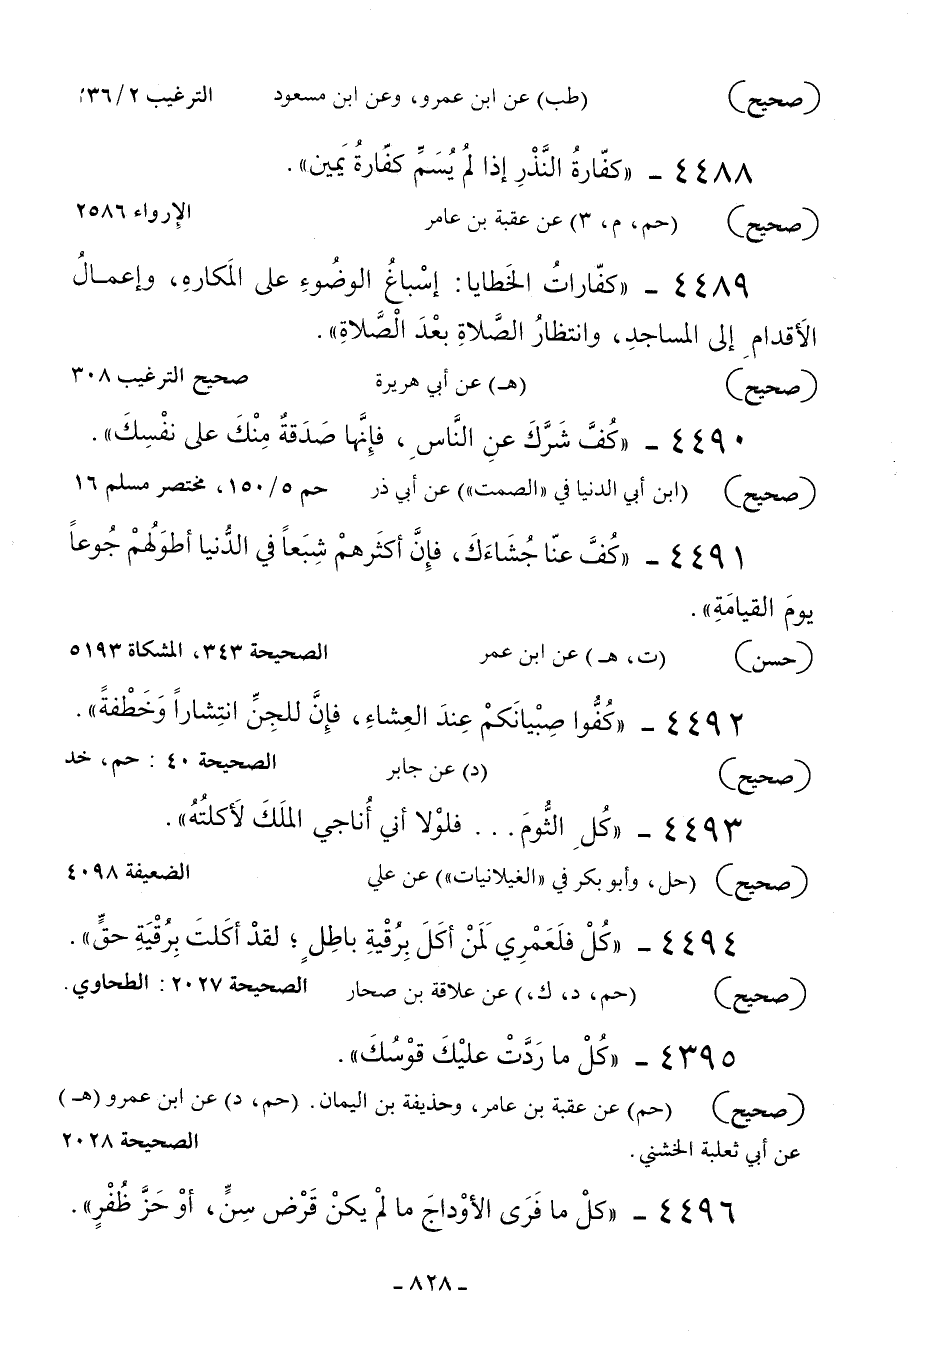 (صحيح) (طب) عن ابن عمرو، وعن ابن مسعود الترغيب ٢/٣٦
٤٤٨٨ ـ «كفّارةُ النَّذْرِ إذا لمْ يُسَمِّ كفّارةُ يَمين».
(صحيح) (حم، م، ٣) عن عقبة بن عامر الإرواء ٢٥٨٦
٤٤٨٩ ـ «كفّاراتُ الخَطايا: إسْباغُ الوضُوءِ على المَكارهِ، وإعمـالُ
الأَقدامِ إلى المساجدِ، وانتظارُ الصَّلاةِ بعْدَ الْصَّلاةِ».
(صحيح) (هـ) عن أبي هريرة صحيح الترغيب ٣٠٨
٤٤٩٠ ـ «كُفَّ شَرَّكَ عنِ النَّاسِ، فإنَّها صَدَقةٌ مِنْكَ على نفْسِكَ».
(صحيح) (ابن أبي الدنيا في «الصمت») عن أبي ذر حم ١٥٠/٥، مختصر مسلم ١٦
٤٤٩١ ـ «كُفَّ عنّا جُشَاءَكَ، فإنَّ أكثَرهمْ شِبَعاً في الدُّنيا أطوَلُهمْ جُوعاً
يومَ القيامَةِ».
(حسن) (ت، هـ) عن ابن عمر الصحيحة ٣٤٣، المشكاة ٥١٩٣
٤٤٩٢ ـ «كُفُّوا صِبْيانَكمْ عِندَ العِشاءِ، فإنَّ للجِنِّ انتِشاراً وَخَطْفةً».
(صحيح) (د) عن جابر الصحيحة ٤٠ : حم، خد
٤٤٩٣ ـ «كُلِ الثُّومَ... فلوْلا أني أُناجي الملَكَ لَأكلتُهُ».
(صحيح) (حل، وأبو بكر في «الغيلانيات») عن علي الضعيفة ٤٠٩٨
٤٤٩٤ ـ «كُلْ فلَعَمْرِي لَمنْ أكَلَ بِرُقْيةِ باطِلٍ؛ لقدْ أكَلتَ بِرُقْيَةِ حقٍّ».
(صحيح) (حم، د، ك،) عن علاقة بن صحار الصحيحة ٢٠٢٧ : الطحاوي.
٤٣٩٥ ـ «كُلْ ما رَدَّتْ عليْكَ قوْسُكَ».
(صحيح) (حم) عن عقبة بن عامر، وحذيفة بن اليمان. (حم، د) عن ابن عمرو (هـ)
عن أبي ثعلبة الخشني. الصحيحة ٢٠٢٨
٤٤٩٦ ـ «كلْ ما فَرَى الأوْداجَ ما لمْ يكنْ قَرْض سِنٍّ، أوْ حَزَّ ظُفْرٍ».
ـ ٨٢٨ ـ